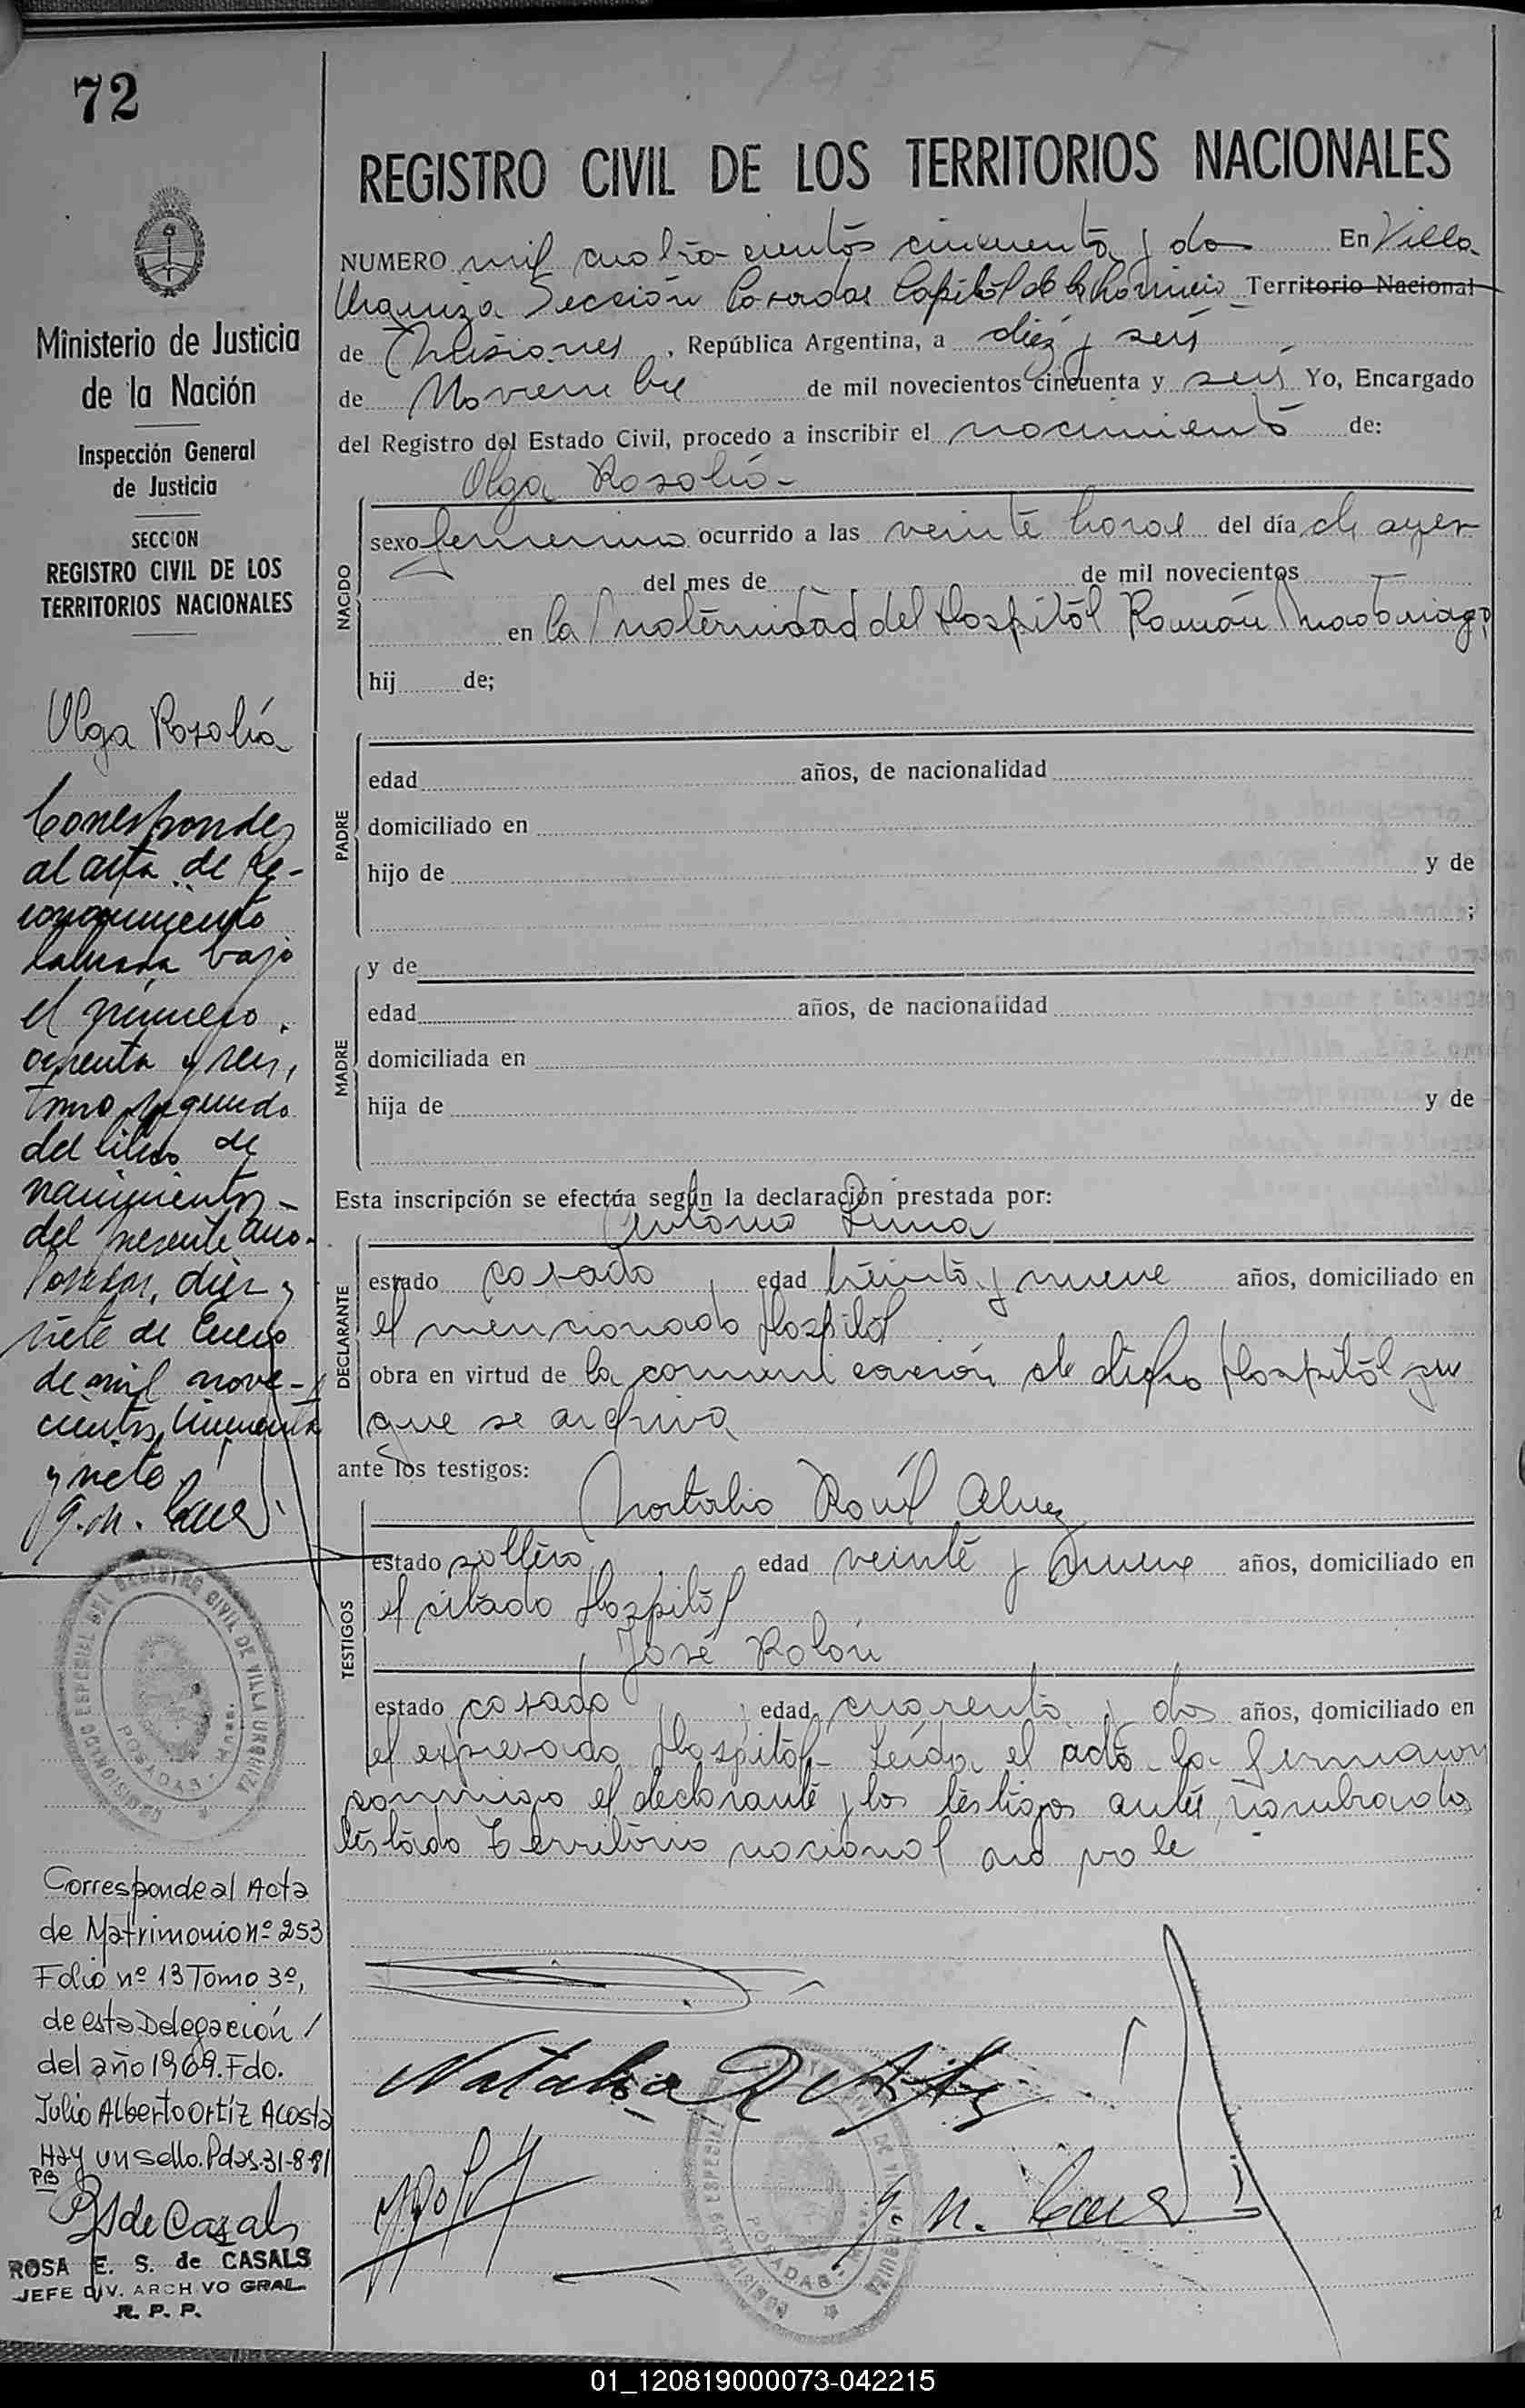 72
Ministerio de Justicia
de la Nación
Inspección General
de Justicia
SECCION
REGISTRO CIVIL DE LOS
TERRITORIOS NACIONALES
Olga Rosalía
Corresponde
al acta de Re-
conocimiento
labrada bajo
el número
ochenta y seis,
tomo segundo
del libro de
nacimientos
del presente año.
Posadas, diez y
siete de Enero
de mil nove-
cientos cincuenta
y siete
Corresponde al Acta
de Matrimonio nº 253
Folio nº 13 Tomo 3º,
de esta Delegación
del año 1969. Fdo.
Julio Alberto Ortíz Acosta
Hay un sello. Pdas. 31-8-81
PB
RSdeCasals
ROSA E. S. de CASALS
JEFE DIV. ARCHIVO GRAL.
R. P. P.
REGISTRO CIVIL DE LOS TERRITORIOS NACIONALES
NUMERO mil cuatro cientos cincuenta y dos En Villa
Urquiza Sección Posadas Capital de la Provincia Territorio Nacional
de Misiones, República Argentina, a diez y seis
de Noviembre de mil novecientos cincuenta y seis Yo, Encargado
del Registro del Estado Civil, procedo a inscribir el nacimiento de:
Olga Rosalía-
NACIDO
sexo femenino ocurrido a las veinte horas del día de ayer
del mes de de mil novecientos
en la Maternidad del Hospital Ramón Madariaga
hij de;
PADRE
edad años, de nacionalidad
domiciliado en
hijo de y de
;
MADRE
y de
edad años, de nacionalidad
domiciliada en
hija de y de
Esta inscripción se efectúa según la declaración prestada por:
Antonio Luna
DECLARANTE
estado casado, edad treinta y nueve años, domiciliado en
el mencionado Hospital
obra en virtud de la comunicación de dicho Hospital
que se archiva
ante los testigos:
Natalio Raúl
TESTIGOS
estado soltero, edad veinte y nueve años, domiciliado en
el citado Hospital
José Rolón
estado casado, edad cuarenta y dos años, domiciliado en
el expresado Hospital- Leída el acta la firmaron
conmigo el declarante y los testigos antes nombrados
testado Territorio nacional no vale
COMISIONADO ESPECIAL DEL REGISTRO CIVIL DE VILLA URQUIZA
POSADAS - Mnes.
01_120819000073-042215